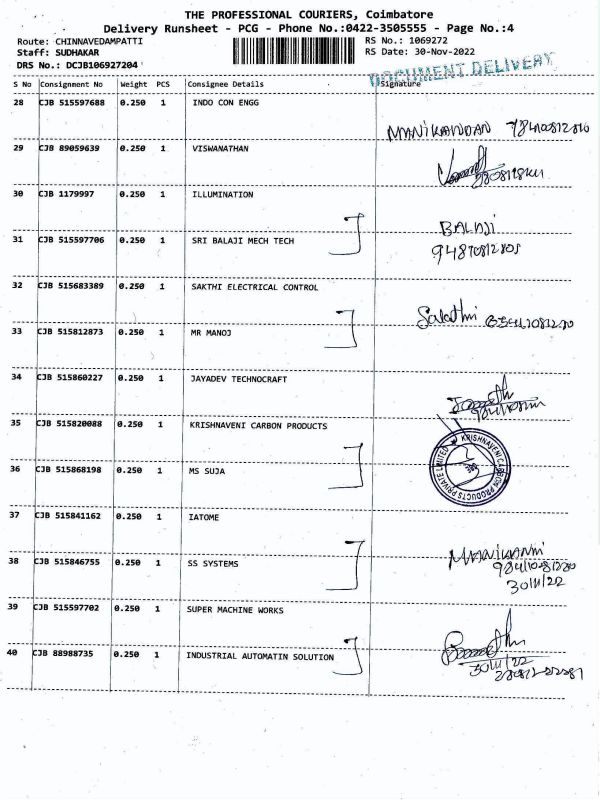 THE PROFESSIONAL COURIERS, Coimbatore
Delivery Runsheet - PCG - Phone No.:0422-3505555 - Page No.:4
Route: CHINNAVEDAMPATTI RS No.: 1069272
Staff: SUDHAKAR RS Date: 30-Nov-2022
DRS No.: DCJB106927204
DOCUMENT DELIVERY
S No Consignment No Weight PCS Consignee Details Signature
28 CJB 515597688 0.250 1 INDO CON ENGG
MANIKANDAN
29 CJB 89059639 0.250 1 VISWANATHAN
30 CJB 1179997 0.250 1 ILLUMINATION
BALAJI
31 CJB 515597706 0.250 1 SRI BALAJI MECH TECH
32 CJB 515683389 0.250 1 SAKTHI ELECTRICAL CONTROL
Sakthi
33 CJB 515812873 0.250 1 MR MANOJ
34 CJB 515860227 0.250 1 JAYADEV TECHNOCRAFT
35 CJB 515820088 0.250 1 KRISHNAVENI CARBON PRODUCTS
KRISHNAVENI CARBON PRODUCTS PRIVATE LIMITED
36 CJB 515868198 0.250 1 MS SUJA
37 CJB 515841162 0.250 1 IATOME
38 CJB 515846755 0.250 1 SS SYSTEMS
30/11/22
39 CJB 515597702 0.250 1 SUPER MACHINE WORKS
40 CJB 88988735 0.250 1 INDUSTRIAL AUTOMATIN SOLUTION
30/11/22